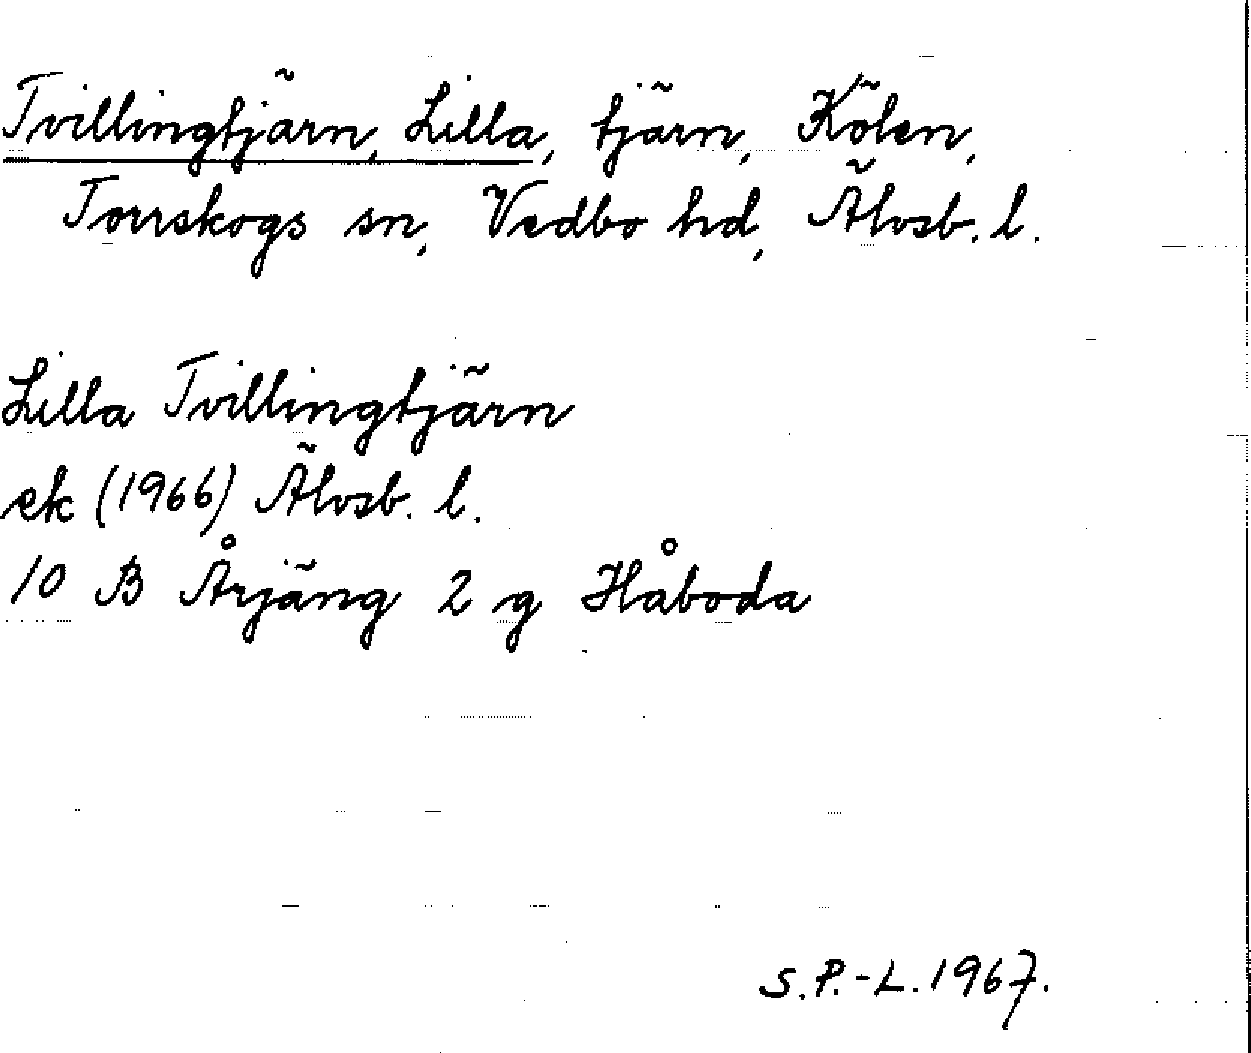 Tvillingtjärn, Lilla, tjärn, Kölen,
Torrskogs sn, Vedbo hd, Älvsb. l.
Lilla Tvillingtjärn
ek (1966) Älvsb. l.
10 B Årjäng 2 g Håboda
S.P.-L. 1967.